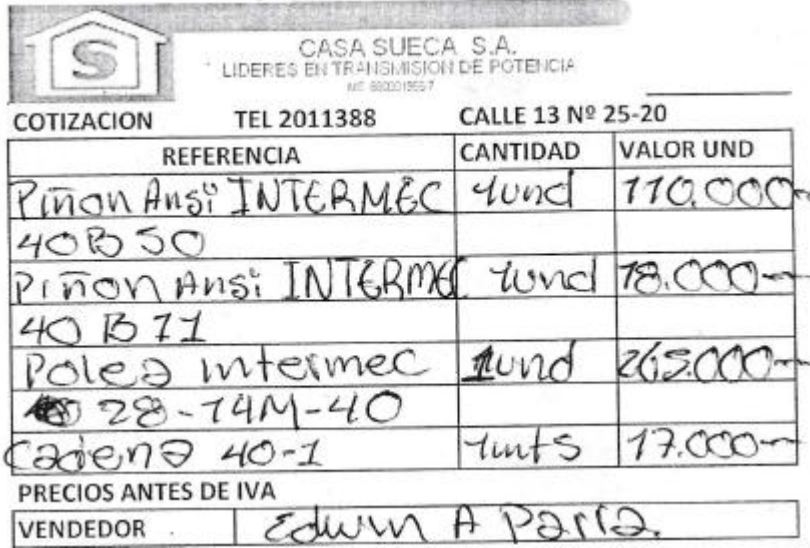 S
CASA SUECA S.A.
LIDERES EN TRANSMISION DE POTENCIA
COTIZACION TEL 2011388 CALLE 13 Nº 25-20
REFERENCIA CANTIDAD VALOR UND
Piñon Ansi INTERMEC 1und 110.000
40B50
Piñon Ansi INTERMEC 1und 18.000
40B11
Polea intermec 1und 265.000
28-14M-40
Cadena 40-1 1mts 17.000
PRECIOS ANTES DE IVA
VENDEDOR Edwin A Parra.